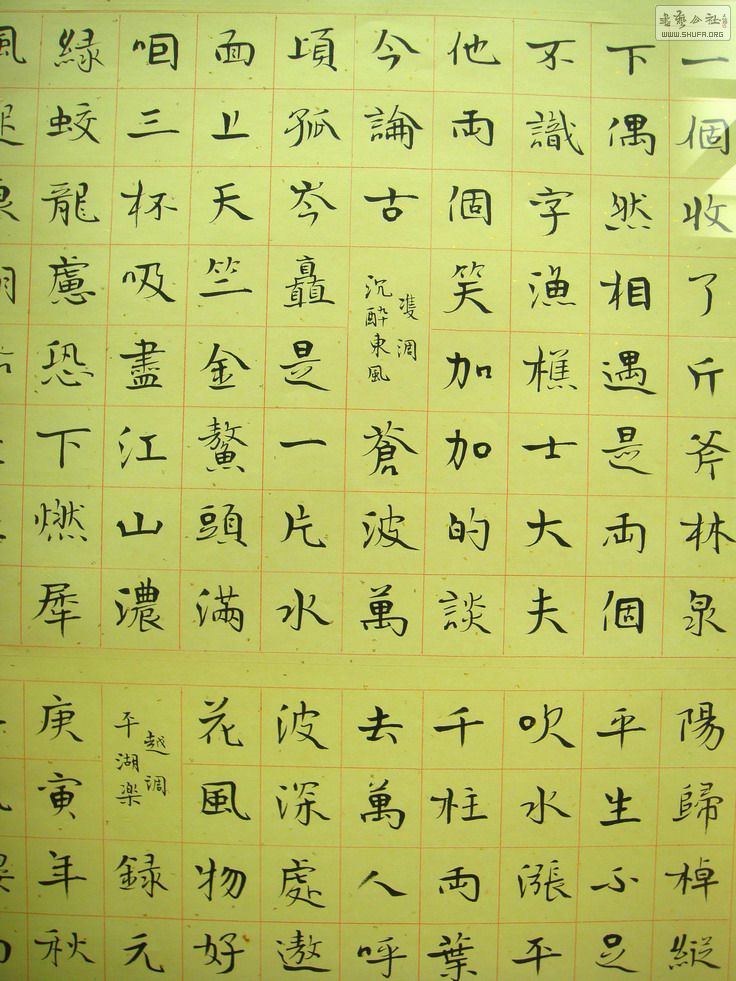 書藝公社
WWW.SHUFA.ORG
一個收了斤斧林泉
下偶然相遇是両個
不識字漁樵士大夫
他両個笑加加的談
今論古
隻調
沉醉東風
蒼波萬
頃孤岑矗是一片水
面上天竺金鰲頭滿
咽三杯吸盡江山濃
緑蛟龍慮恐下燃犀
風
陽歸棹縱
平生不足
吹水漲平
千柱両葉
去萬人呼
波深處遨
花風物好
越調
平湖楽
録元
庚寅年秋